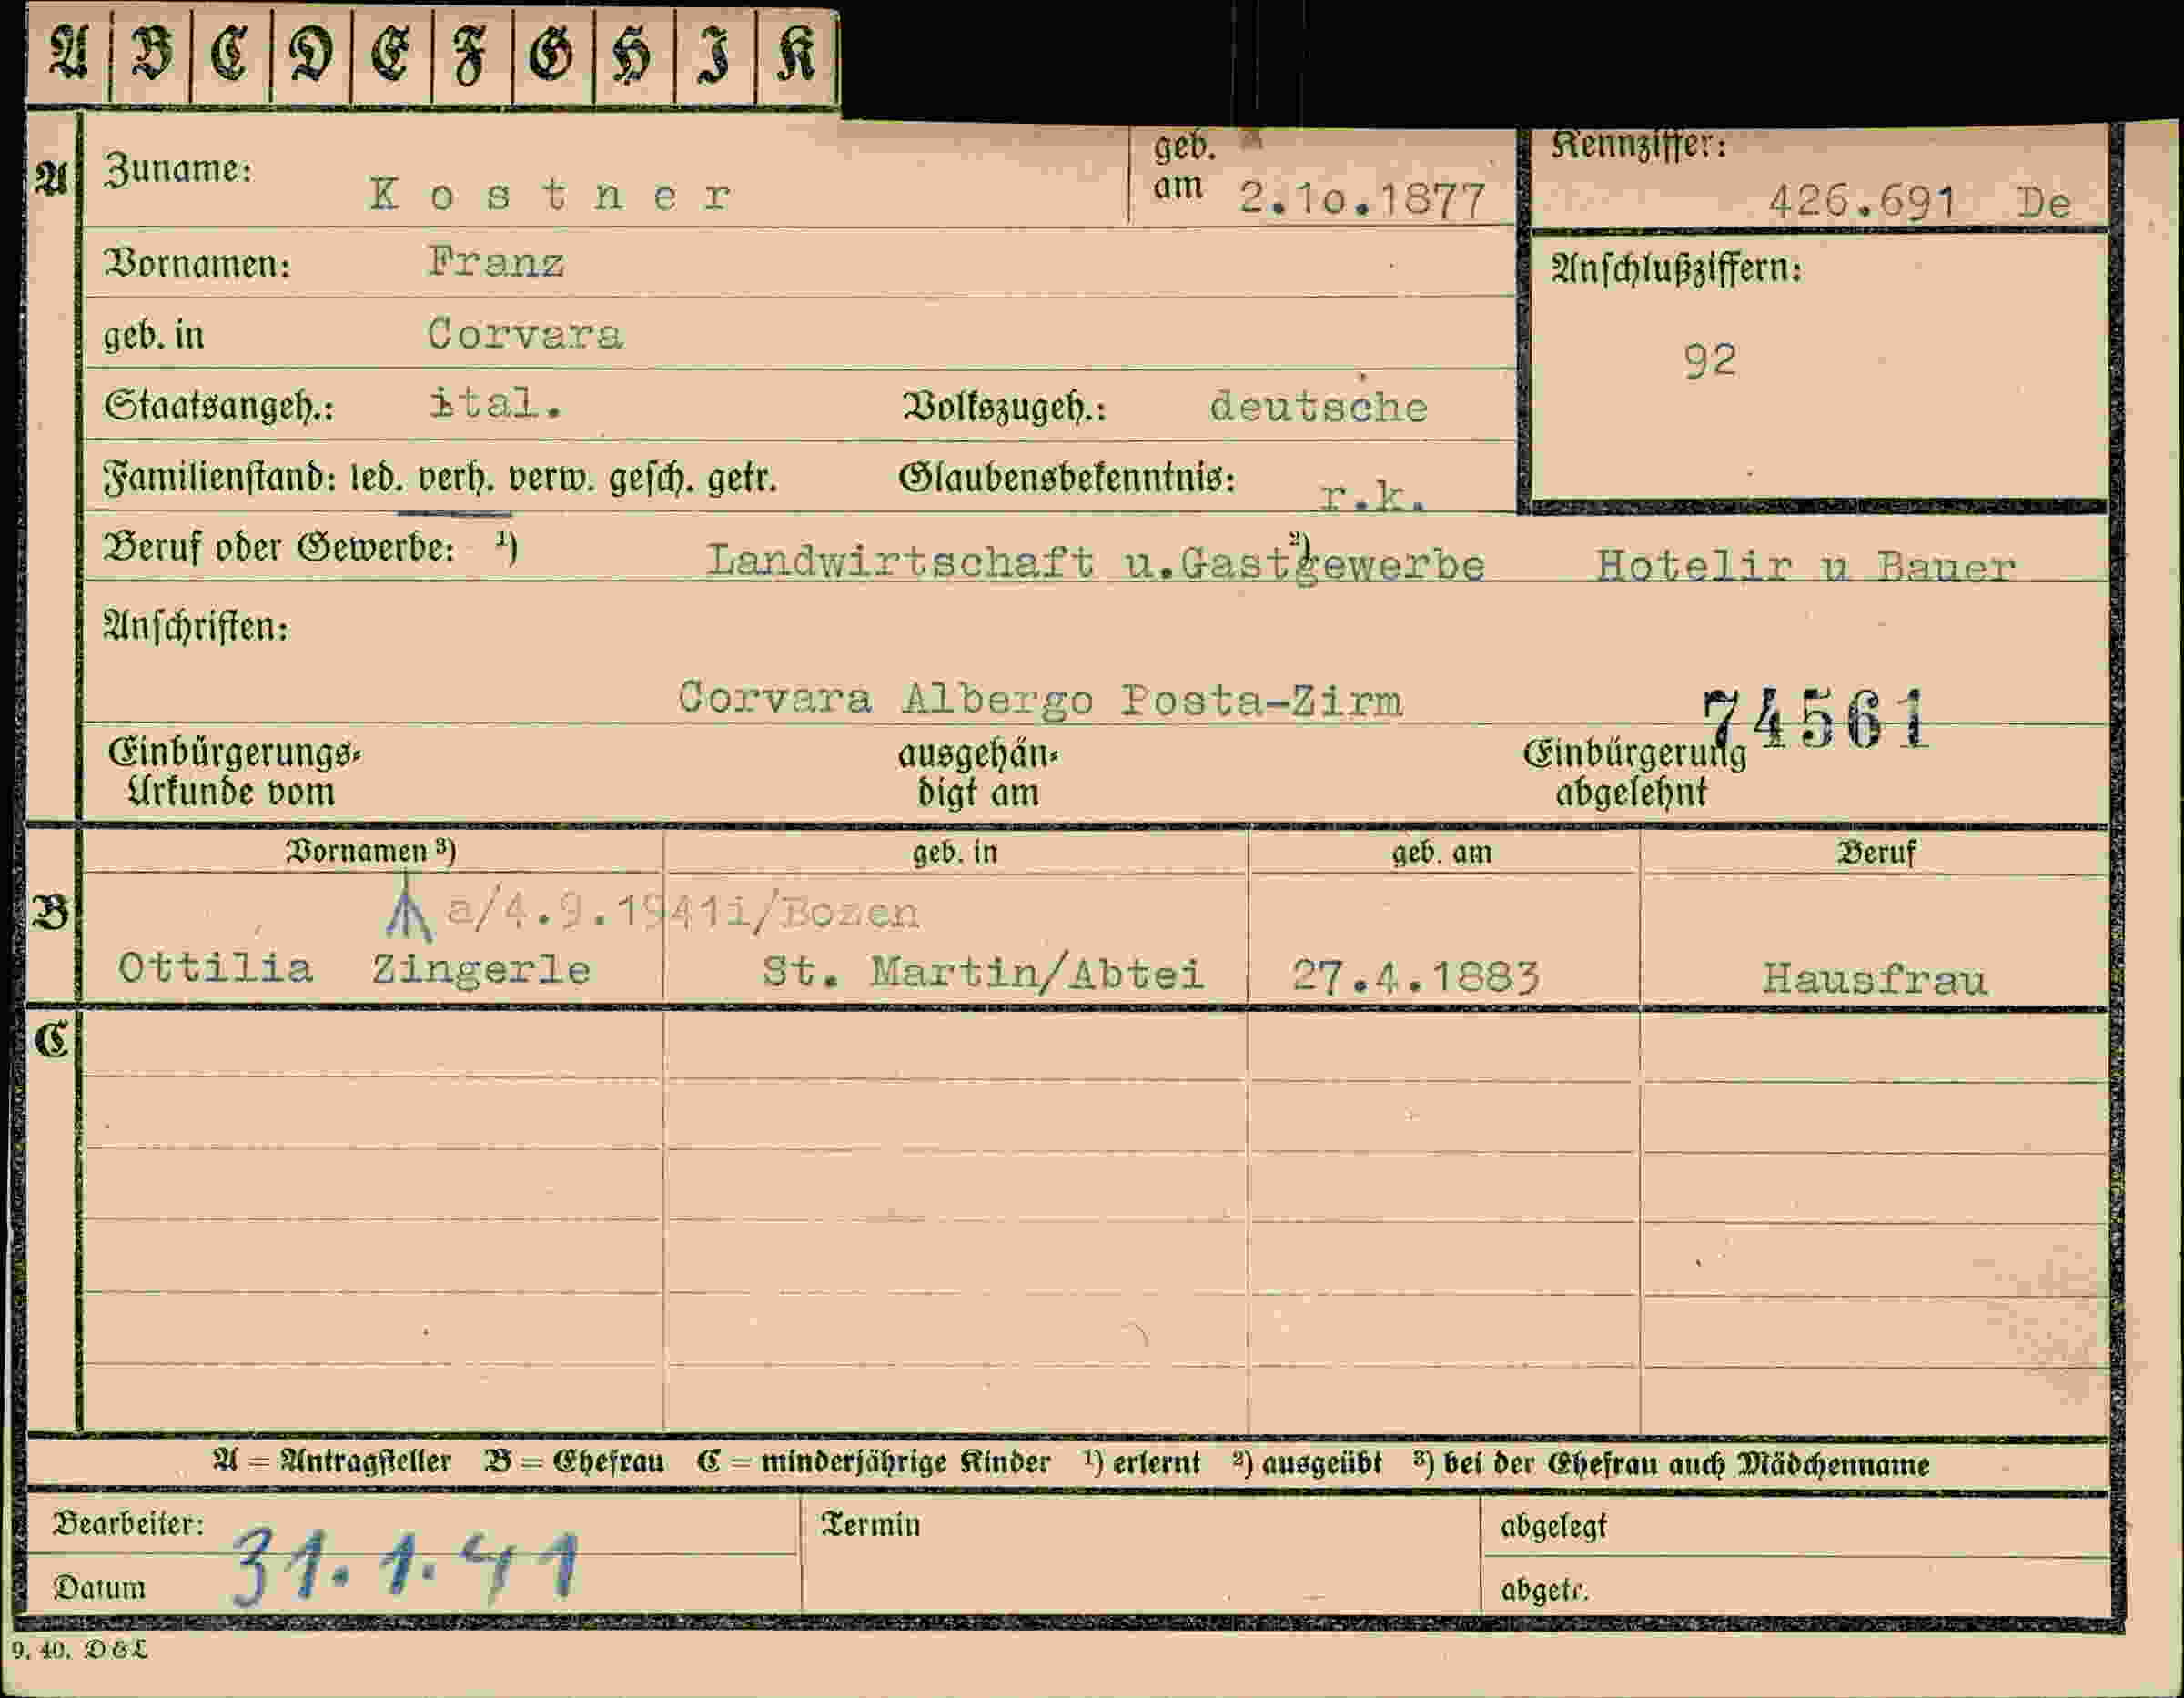 A B C D E F G H I K
A Zuname: Kostner geb. am 2.10.1877 Kennziffer: 426.691 De
Vornamen: Franz Anschlußziffern:
geb. in Corvara 92
Staatsangeh.: ital. Volkszugeh.: deutsche
Familienstand: led. verh. verw. gesch. getr. Glaubensbekenntnis: r.k.
Beruf oder Gewerbe: ¹) Landwirtschaft u.Gastgewerbe ²) Hotelir u Bauer
Anschriften:
Corvara Albergo Posta-Zirm 74561
Einbürgerungs- ausgehän- Einbürgerung
Urkunde vom digt am abgelehnt
Vornamen ³) geb. in geb. am Beruf
B a/4.9.1941i/Bozen
Ottilia Zingerle St. Martin/Abtei 27.4.1883 Hausfrau
C
A = Antragsteller B = Ehefrau C = minderjährige Kinder ¹) erlernt ²) ausgeübt ³) bei der Ehefrau auch Mädchenname
Bearbeiter: Termin abgelegt
31.1.41
Datum abgetr.
9. 40. D & L